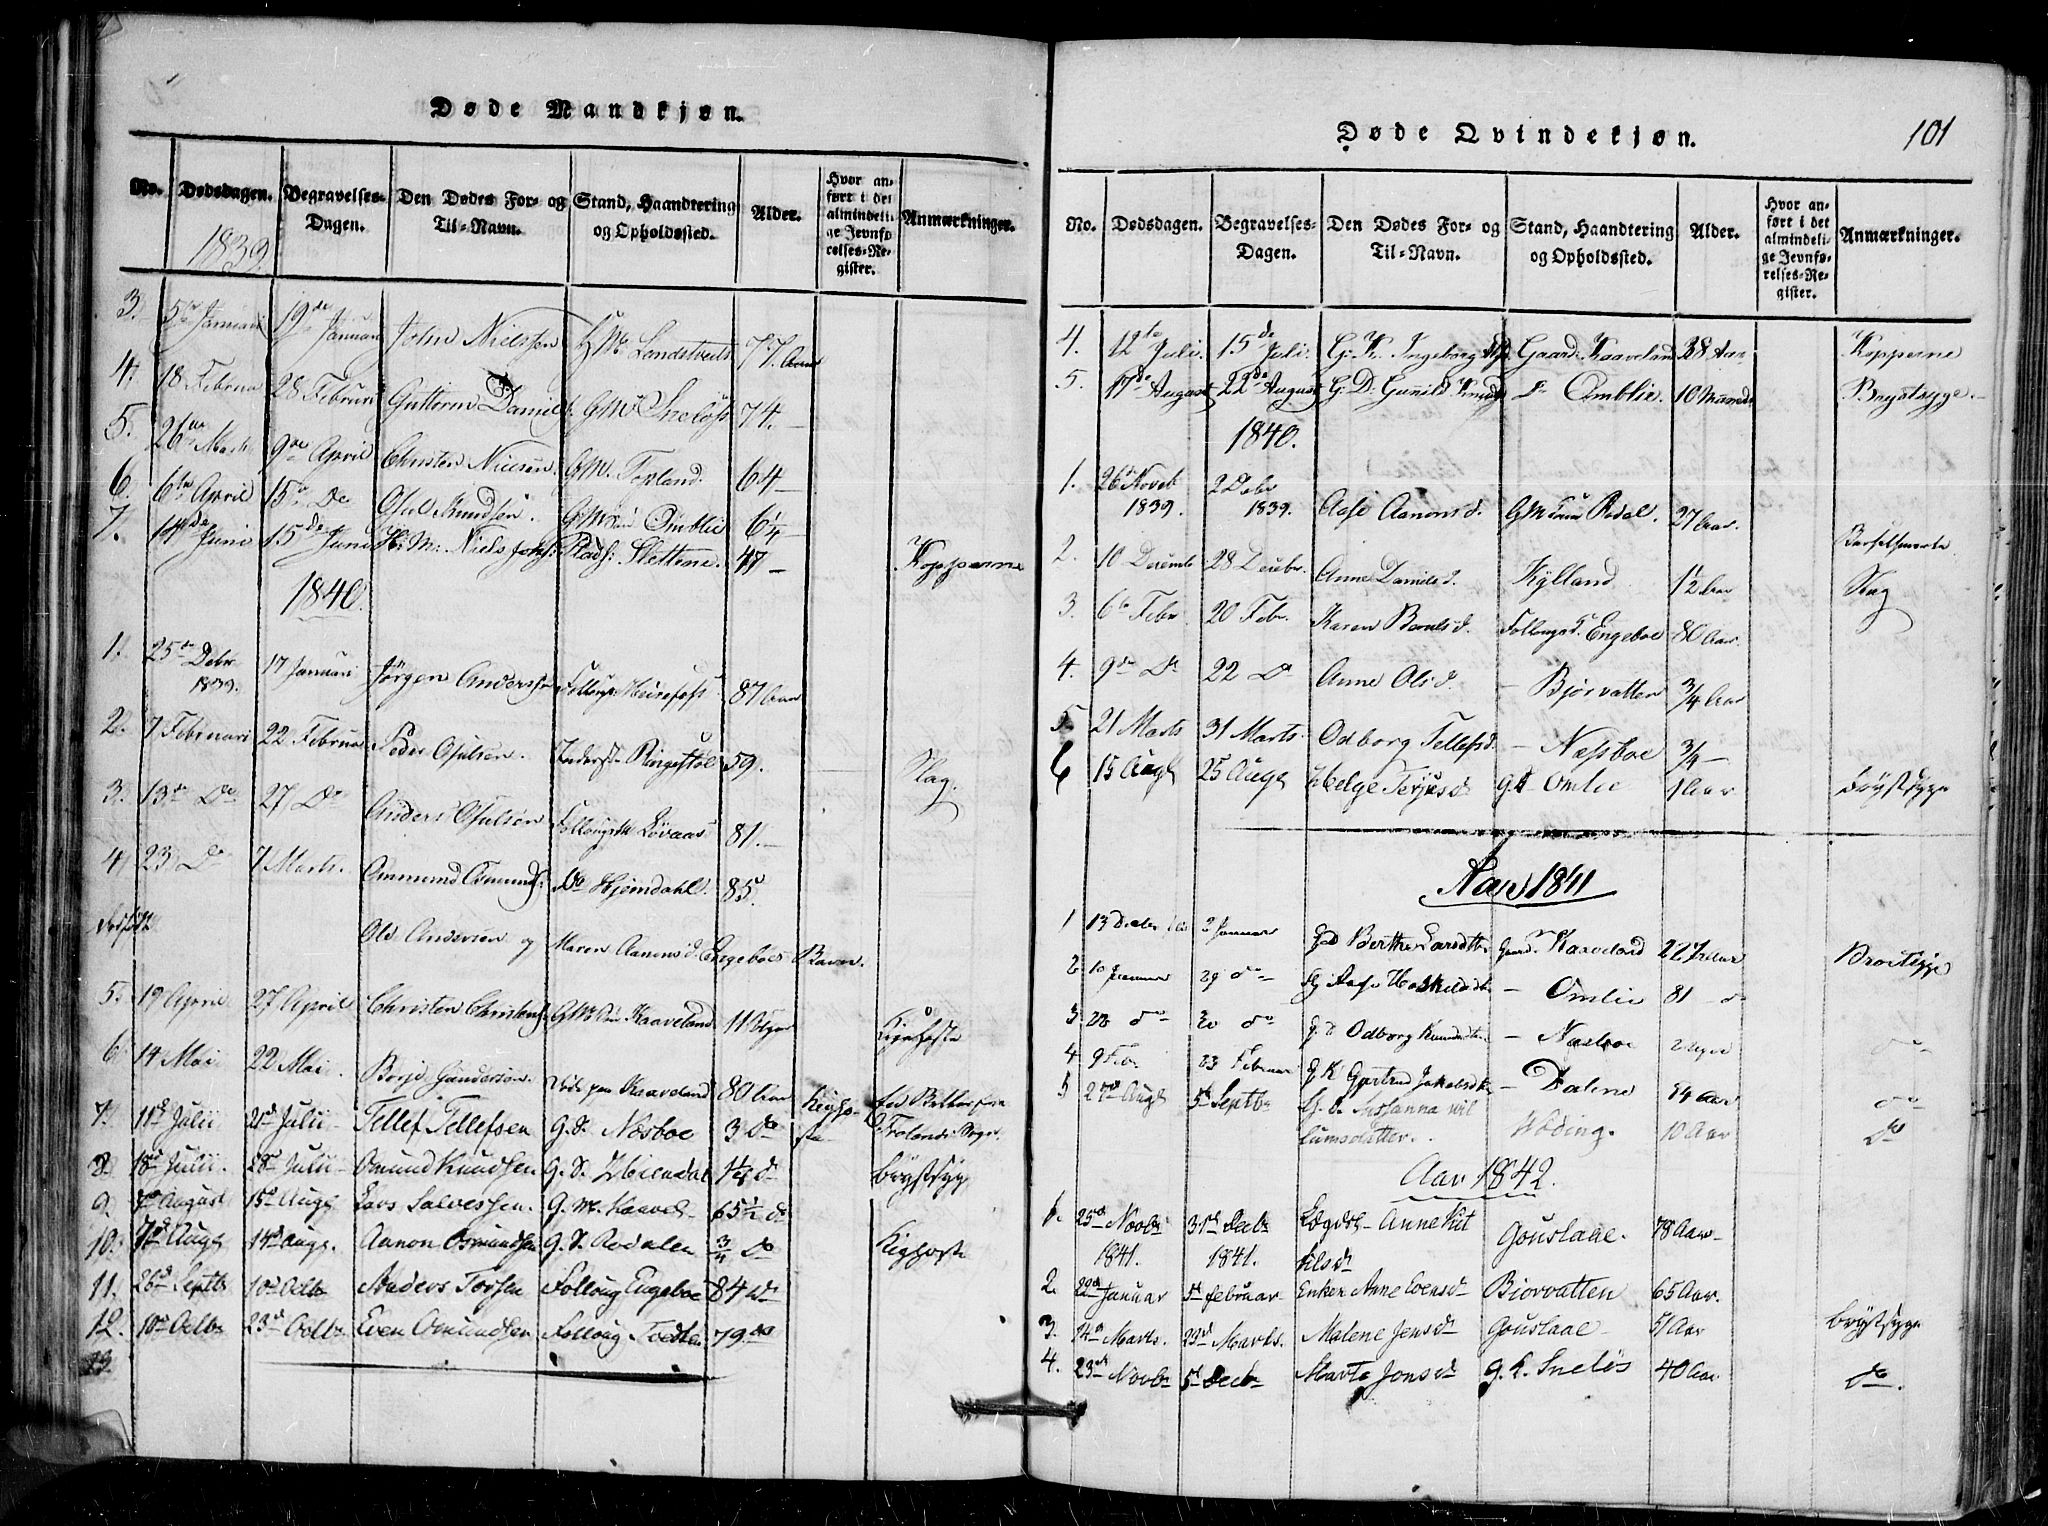 Døde Mandkjøn.
No. Dødsdagen. Begravelses-Dagen. Den Dødes For- og Til-Navn. Stand, Haandtering og Opholdssted. Alder. Hvor anført i det almindelige Jevnførelses-Register. Anmærkninger.
1839.
3. 5te Januari 19de Januari John Nielssøn G.M. Londstvedt 77 Aar
4. 18 Februa 28 Februa Guttorm Daniels. GM. Sneløss 74. —
5. 26de Marts 9de April Christen Nielsøn GM. Topland. 64 —
6. 6te April 15de Do Osul Knudsøn. GM Søn Omblie 6 1/4 —
7. 14de Juni 15de Juni H: M: Niels Johs: Plads: Slettene. 47 — Kopperne
1840.
1. 25de Debr 1839. 17 Januari Jørgen Anderssøn Follougs. Heirefoss 87 Aar
2. 7 Februari 22 Februa Peder Osulsøn. Inderst. Ringestøl 59. Slag.
3. 13de Do 27 Do Anders Osulsøn Follougsm. Løvaas 81. —
4 23 Do 7 Marts. Ommund Osmunds: Do Hjemdahl. 85.
Dødfødt Ole Andersen og Maren Aanonsd. Engeboes Barn.
5. 19 April 27 April Christen Christens. GM. Søn Kaaveland 11 Uger Kighoste
6 14 Mai 22 Mai. Borje Gundersøn. Døde paa Kaaveland 80 Aar
7. 11d Julii 21d Julii Tellef Tellefsen G.S. Næsboe 3 Do Kigho-ste
Frolands Sogn.
8. 18d Julii. 28d Julii Omund Knudsen G.S. Heiendal 1 1/4 d Brystsyg
9. 7d August 15d Augt Lars Salvessen. G.M. Kaavel- 65 1/2 d
10. 7d Augt 14d Augt. Aanon Osmundsen G.S. Rodalen 3/4 Do Kighoste
11. 26d Septbr 10d Octbr Anders Torsen Folloug Engeboe 84 do
12. 10d Octbr 23d Octbr Even Omundsen Folloug Tvedten 79 do
Døde Qvindekjøn.
101
No. Dødsdagen. Begravelses-Dagen. Den Dødes For- og Til-Navn. Stand, Haandtering og Opholdssted. Alder. Hvor anført i det almindelige Jevnførelses-Register. Anmærkninger.
4. 12te Juli 15de Juli. G. K. Ingeborg Gaard: Kaaveland 38 Aar Kopperne
5. 17de August 22de August G: D: Gunild Knuds Do Omblie. 10 Maaneder Brystsyge. —
1840.
1. 26de Novbr 1839. 2 Debr 1839. Aase Aanonsd. GM Rodal. 27 Aar. Barselsmerte
2. 10 Decembr 28 Decbr. Anne Danielsd. Kylland 1/2 Aar Slag
3. 6te Febr. 20 Febr. Karen Berntsd. Follougs. Engeboe 80 Aar.
4. 9de Do 22 Do Anne Olsd. — Bjorvatten 3/4 Aar
5. 21 Marts 31 Marts. Odborg Tellefsd. — Næssboe 3/4 —
6 15 Augt 25 Augt Helge Terjesd G.D. Omlie 1 Aar Brystsyge
Aar 1841
1 13 Decbr 2 Januar Berthe Larsdtr. Gaard Kaaveland 22 Brostsyge
2 10 Januar 29 do Aase Haskelsdtr — Omlie 81 — do
3 28 do 30 do G. d Odborg Knudsdtr — Næsboe 2 Uger do
4 9 Feb. 23 Februar G. K Gjertrud Jakobsdtr — Dalene 84 Aar
5 27d Augt 5d Septbr G. d. Susanna Wil-lumsdatter. Woding. 10 Aar Do
Aar 1842.
1. 25d Novbr 1841. 31d Decbr 1841. Lægdsl- Anne Kit-tilsd Gouslaae. 78 Aar
2. 22d Januar 5d Februar Enken Anne Evensd Biorvatten 65 Aar.
3. 14d Marts. 23d Marts. Malene Jensd Gouslaae. 51 Aar Brystsyge
4. 23d Novbr 5d Decbr Marte Jonsd G. K. Sneløs 40 Aar do.